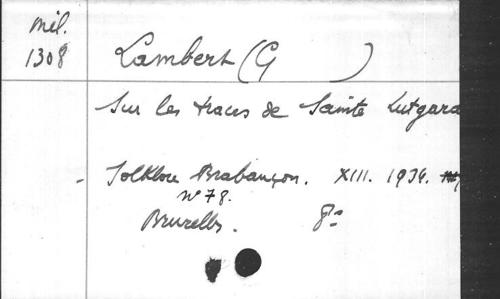 mil.
1308
Lambert (G )
Sur les traces de Sainte Lutgara
- Folklore Brabançon. XIII. 1934.
N° 78.
Bruxelles. 8°